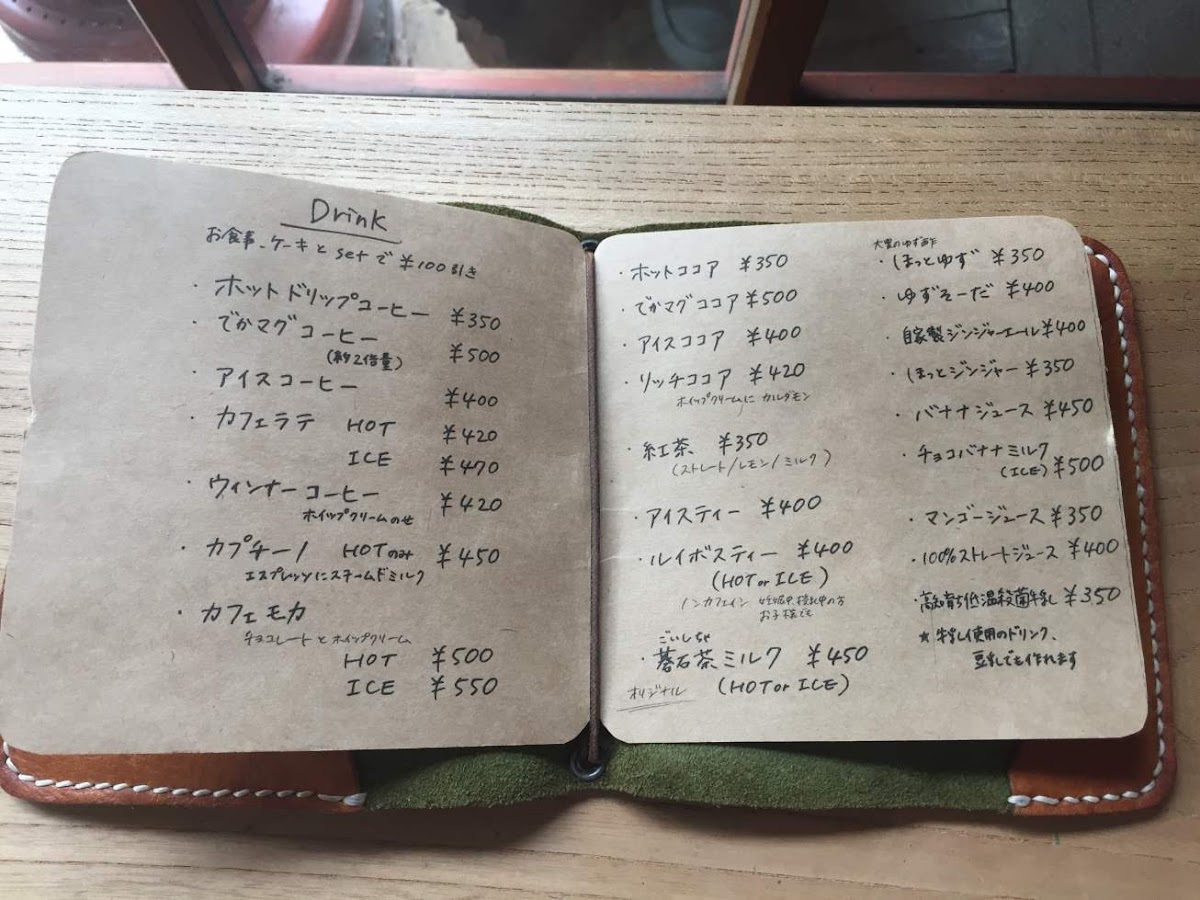 Drink
お食事、ケーキとsetで¥100引き
・ホットドリップコーヒー ¥350
・でかマグコーヒー ¥500
(約2倍量)
・アイスコーヒー ¥400
・カフェラテ HOT ¥420
ICE ¥470
・ウィンナーコーヒー ¥420
ホイップクリームのせ
・カプチーノ HOTのみ ¥450
エスプレッソにスチームドミルク
・カフェモカ
チョコレートとホイップクリーム
HOT ¥500
ICE ¥550
・ホットココア ¥350
・でかマグココア ¥500
・アイスココア ¥400
・リッチココア ¥420
ホイップクリームに カルダモン
・紅茶 ¥350
(ストレート/レモン/ミルク)
・アイスティー ¥400
・ルイボスティー ¥400
(HOT or ICE)
ノンカフェイン 妊娠中、授乳中の方
お子様でも
ごいしちゃ
・碁石茶ミルク ¥450
オリジナル (HOT or ICE)
のゆず
・ほっとゆず ¥350
・ゆずそーだ ¥400
・自家製ジンジャーエール ¥400
・ほっとジンジャー ¥350
・バナナジュース ¥450
・チョコバナナミルク
(ICE) ¥500
・マンゴージュース ¥350
・100%ストレートジュース ¥400
・高知育ち低温殺菌牛乳 ¥350
★牛乳使用のドリンク、
豆乳でも作れます